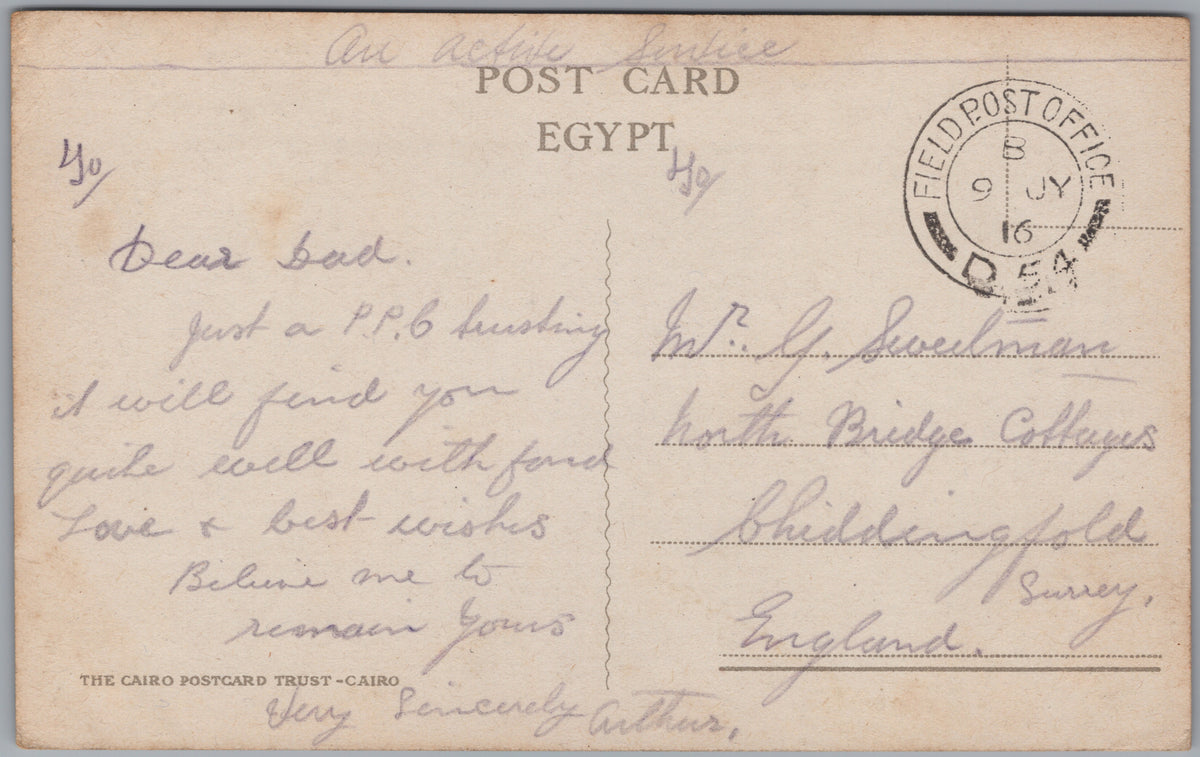 On Active Service
POST CARD
EGYPT
FIELD POST OFFICE
B
9 JY
16
D 54
Dear Dad.
Just a P.P.C trusting
it will find you
quite well with fond
Love & best wishes
Believe me to
remain Yours
Very Sincerely Arthur.
Mr. G. Sweetman
North Bridge Cottages
Chiddingfold
Surrey.
England.
THE CAIRO POSTCARD TRUST - CAIRO